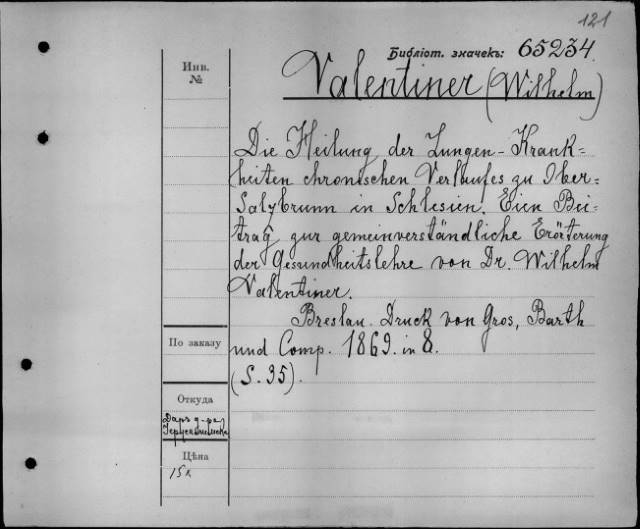 121
Библіот. значекъ: 65234
Инв.
№
Valentiner (Wilhelm)
Die Heilung der Lungen-Krank=
heiten chronischen Verlaufes zu Ober=
Salzbrunn in Schlesien. Eien Bei=
trag zur gemeinverständliche Erörterung
der Gesundheitslehre von Dr. Wilhelm
Valentiner.
Breslau. Druck von Gros, Barth
und Comp. 1869. in 8.
(S. 35).
По заказу
Откуда
Даръ д-ра
Цѣна
15 к